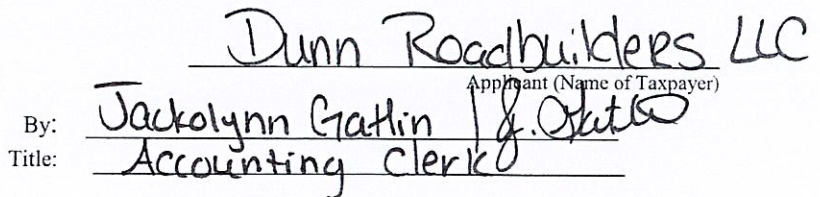 Dunn Roadbuilders LLC
Applicant (Name of Taxpayer)
By: Jackolynn Gatlin | J. Gatlin
Title: Accounting Clerk